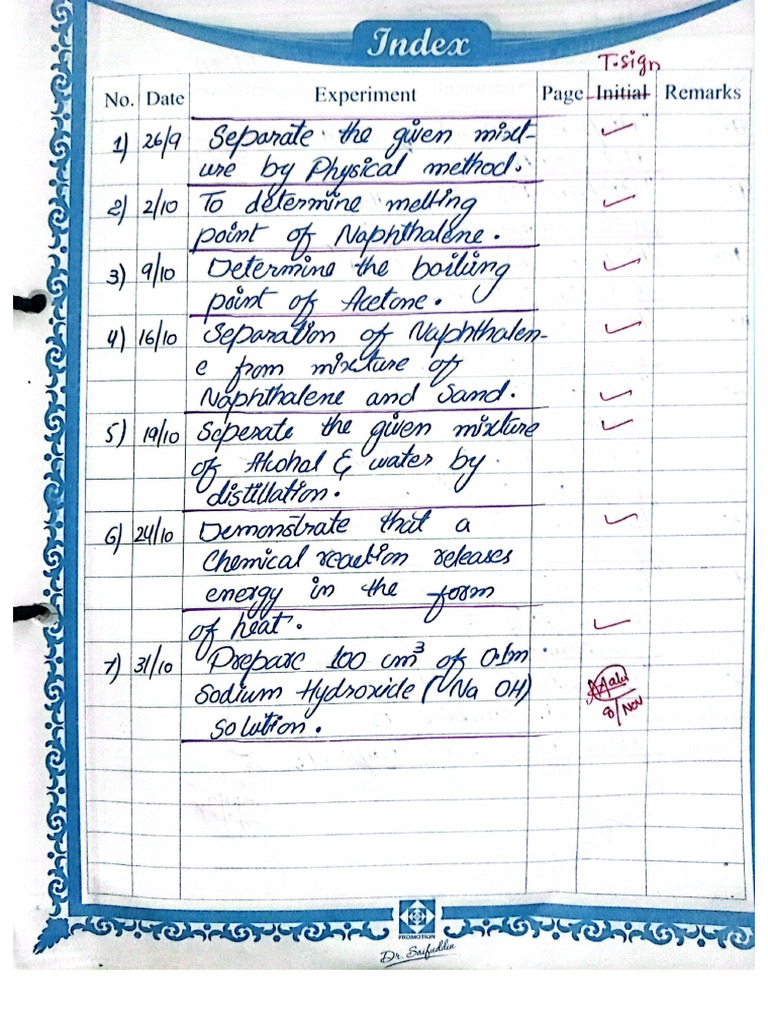 Index
T.sign
No. Date Experiment Page Initial Remarks
1) 26/9 Separate the given mixt-
ure by Physical method.
2) 2/10 To determine melting
point of Naphthalene.
3) 9/10 Determine the boiling
point of Acetone.
4) 16/10 Separation of Naphthalen-
e from mixture of
Naphthalene and Sand.
5) 19/10 Seperate the given mixture
of Alcohal & water by
distillation.
6) 24/10 Demonstrate that a
Chemical reaction releases
energy in the form
of heat.
7) 31/10 Prepare 100 cm³ of 0.1m
Sodium Hydroxide (Na OH)
8/Nov
solution.
PROMOTION
Dr. Saifuddin